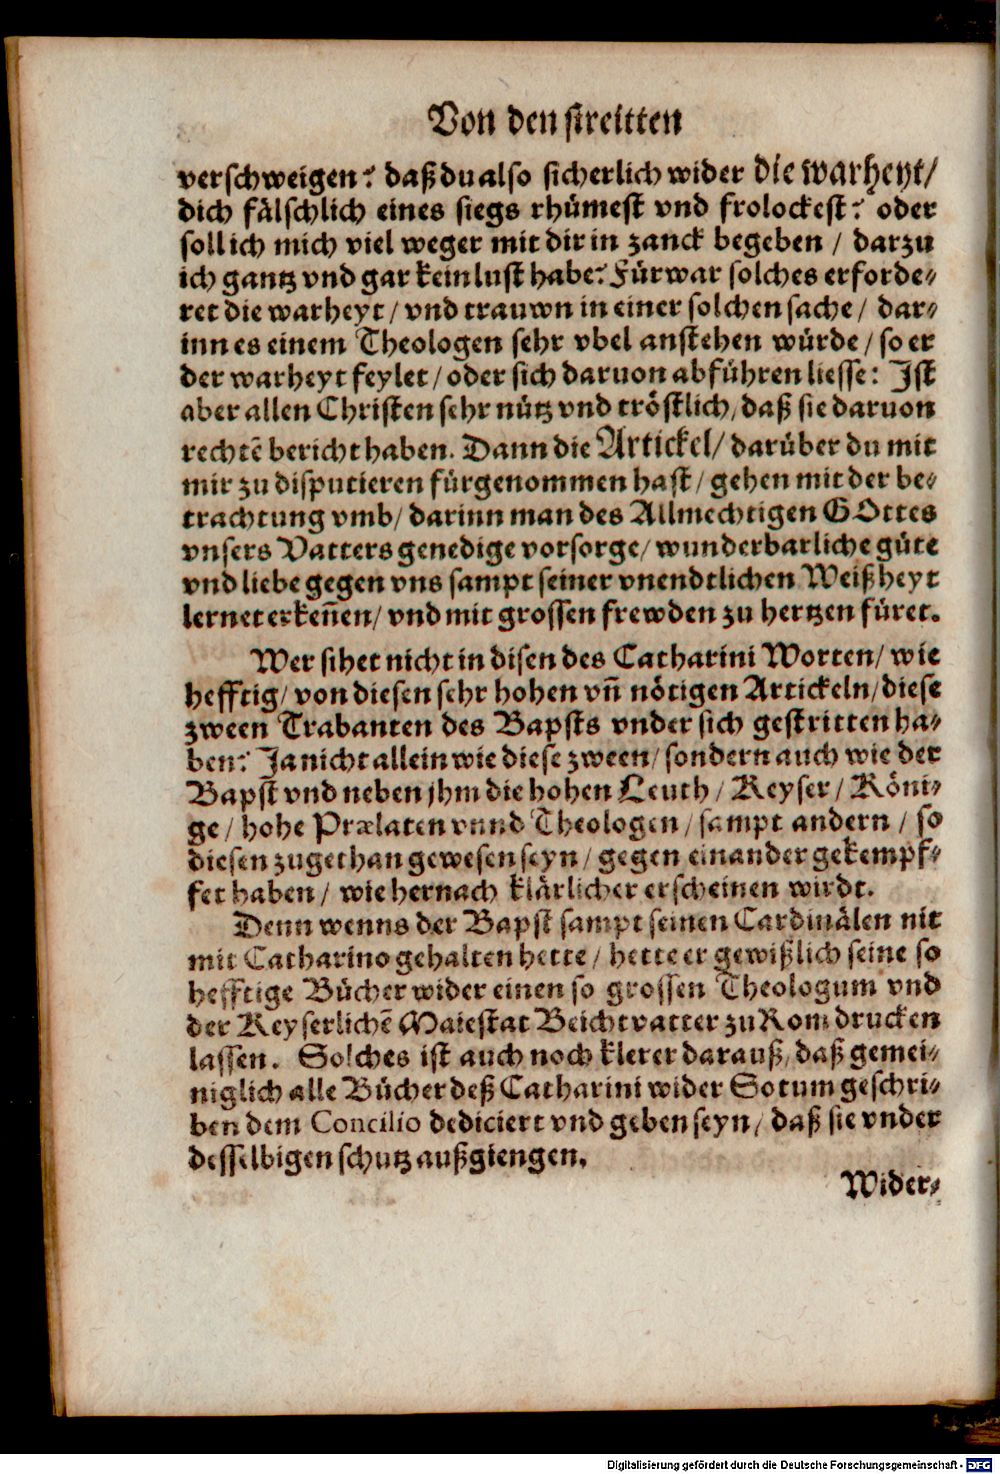 Von den streitten
verschweigen? daß du also sicherlich wider die warheyt/
dich fälschlich eines siegs rhümest vnd frolockest? oder
soll ich mich viel weger mit dir in zanck begeben / darzu
ich gantz vnd gar kein lust habe? Fürwar solches erforde-
ret die warheyt / vnd trauwn in einer solchen sache / dar-
inn es einem Theologen sehr vbel anstehen würde / so er
der warheyt feylet / oder sich daruon abführen liesse: Ist
aber allen Christen sehr nütz vnd tröstlich, daß sie daruon
rechtē bericht haben. Dann die Artickel/ darüber du mit
mir zu disputieren fürgenommen hast / gehen mit der be-
trachtung vmb/ darinn man des Allmechtigen GOttes
vnsers Vatters genedige vorsorge/ wunderbarliche güte
vnd liebe gegen vns sampt seiner vnendtlichen Weißheyt
lernet erkeñen/ vnd mit grossen frewden zu hertzen füret.
Wer sihet nicht in disen des Catharini Worten/ wie
hefftig/ von diesen sehr hohen vñ nötigen Artickeln/ diese
zween Trabanten des Bapsts vnder sich gestritten ha-
ben? Ja nicht allein wie diese zween/ sondern auch wie der
Bapst vnd neben jhm die hohen Leuth / Keyser / Köni-
ge / hohe Prælaten vnnd Theologen / sampt andern / so
diesen zugethan gewesen seyn / gegen einander gekempf-
fet haben / wie hernach klärlicher erscheinen wirdt.
Denn wenns der Bapst sampt seinen Cardinälen nit
mit Catharino gehalten hette / hette er gewißlich seine so
hefftige Bücher wider einen so grossen Theologum vnd
der Keyserlichē Maiestat Beichtvatter zu Rom drucken
lassen. Solches ist auch noch klerer darauß, daß gemei-
niglich alle Bücher deß Catharini wider Sotum geschri-
ben dem Concilio dediciert vnd geben seyn / daß sie vnder
desselbigen schutz außgiengen.
Wider-
Digitalisierung gefördert durch die Deutsche Forschungsgemeinschaft - DFG